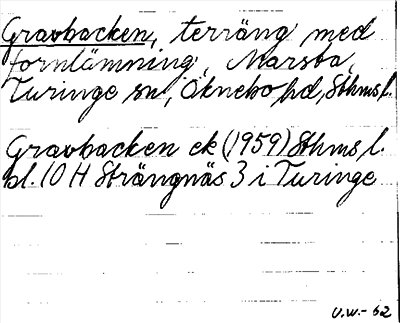 Gravbacken, terräng med
fornlämning, Marsta,
Turinge sn, Öknebo hd, Sthms l.
Gravbacken ek (1959) Sthms l.
bl. 10 H Strängnäs 3 i Turinge
U.W.-62